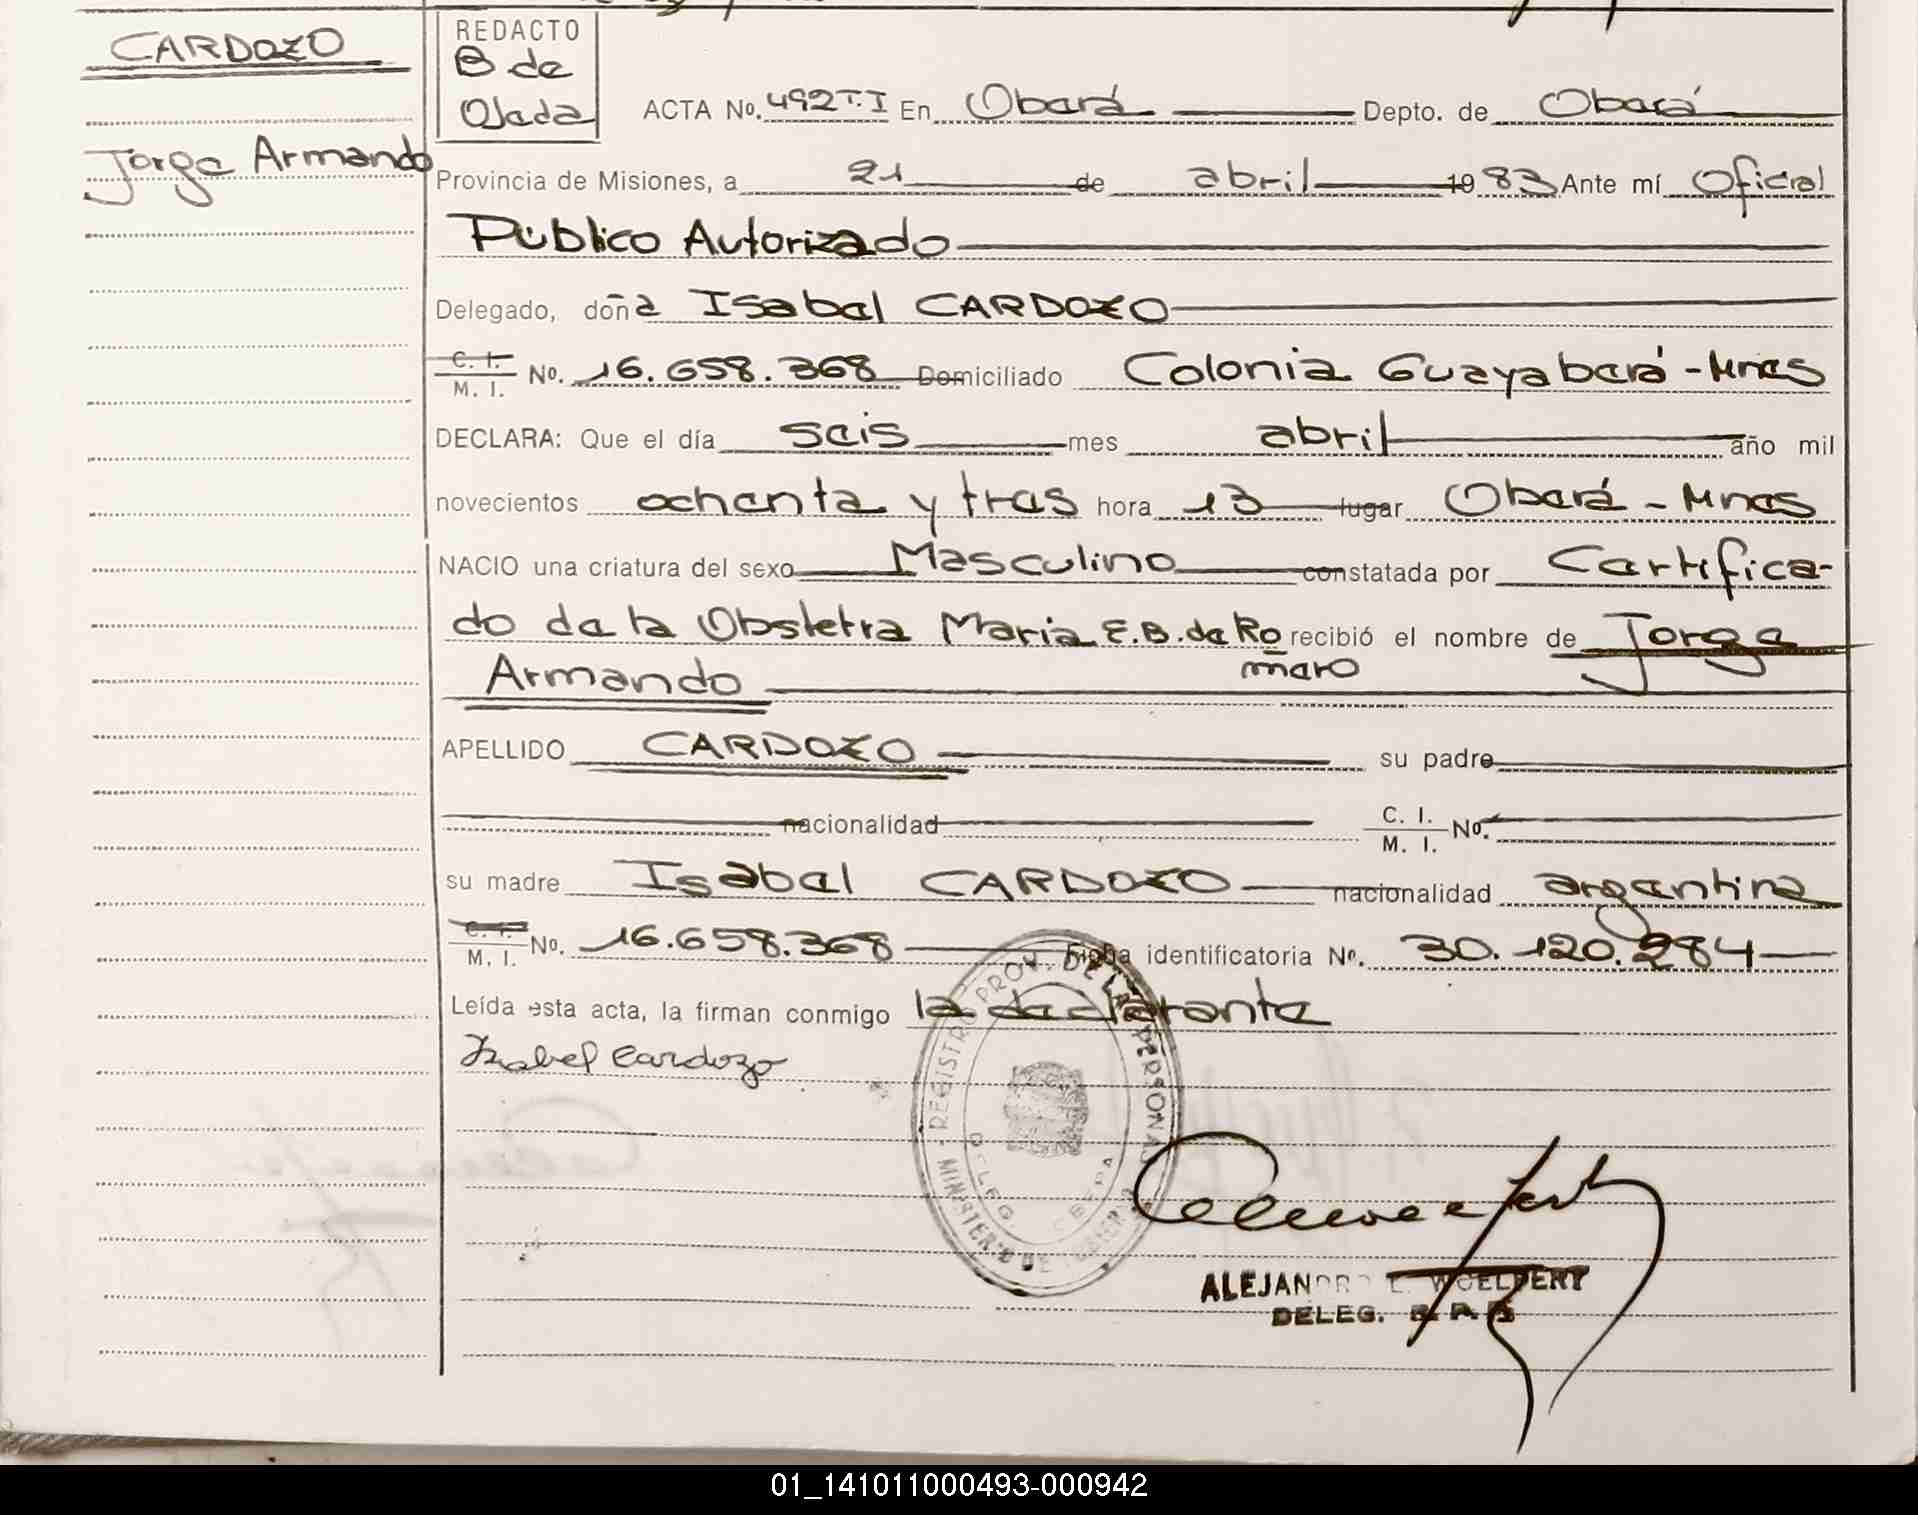 CARDOZO
Jorge Armando
REDACTO
B de
Ojeda
ACTA No. 492 T. I En Oberá Depto. de Oberá
Provincia de Misiones, a 21 de abril 19 83 Ante mí Oficial
Público Autorizado
Delegado, doña Isabel CARDOZO
C. I.
M. I. No. 16.658.368 Domiciliado Colonia Guayaberá - Mnes
DECLARA: Que el día seis mes abril año mil
novecientos ochenta y tres hora 13 lugar Oberá - Mnes
NACIO una criatura del sexo Masculino constatada por Certifica-
do de la Obstetra María E.B. de Ro recibió el nombre de Jorge
mero
Armando
APELLIDO CARDOZO su padre
nacionalidad C. I.
M. I. No.
su madre Isabel CARDOZO nacionalidad argentina
C. I.
M. I. No. 16.658.368 Ficha identificatoria No. 30.120.284
Leída esta acta, la firman conmigo la declarante
Isabel Cardozo
REGISTRO PROV. DE LAS PERSONAS
DELEG. OBERA
MINISTERIO DE GOBIERNO
ALEJANDRO E. WOELFERT
DELEG.
01_141011000493-000942